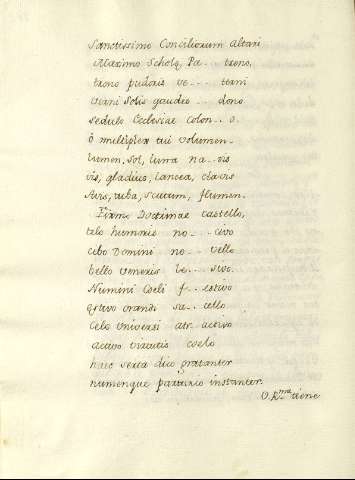 Sanctissimo Conciliorum Altari
Maximo Scholæ, Pa - - trono,
trono pudoris ve - - terni
verni Solis gaudio - - dono
sedulo Ecclesiae colon - - o.
ô multiplex tui volumen -
lumen, Sol, luna na - vis
vis, gladius, lancea, clavis
Avis, tuba, scutum, flumen.
Firmo Doctrinae castello,
telo humoris no - - civo
cibo Domini no - - vello
bello Veneris le - - sivo.
Numini Coeli f - - estivo
estivo orandi sa - - cello
Celo Universi atr - activo
activo virtutis coelo
haec serta dico gratanter
numenque parturio instanter.